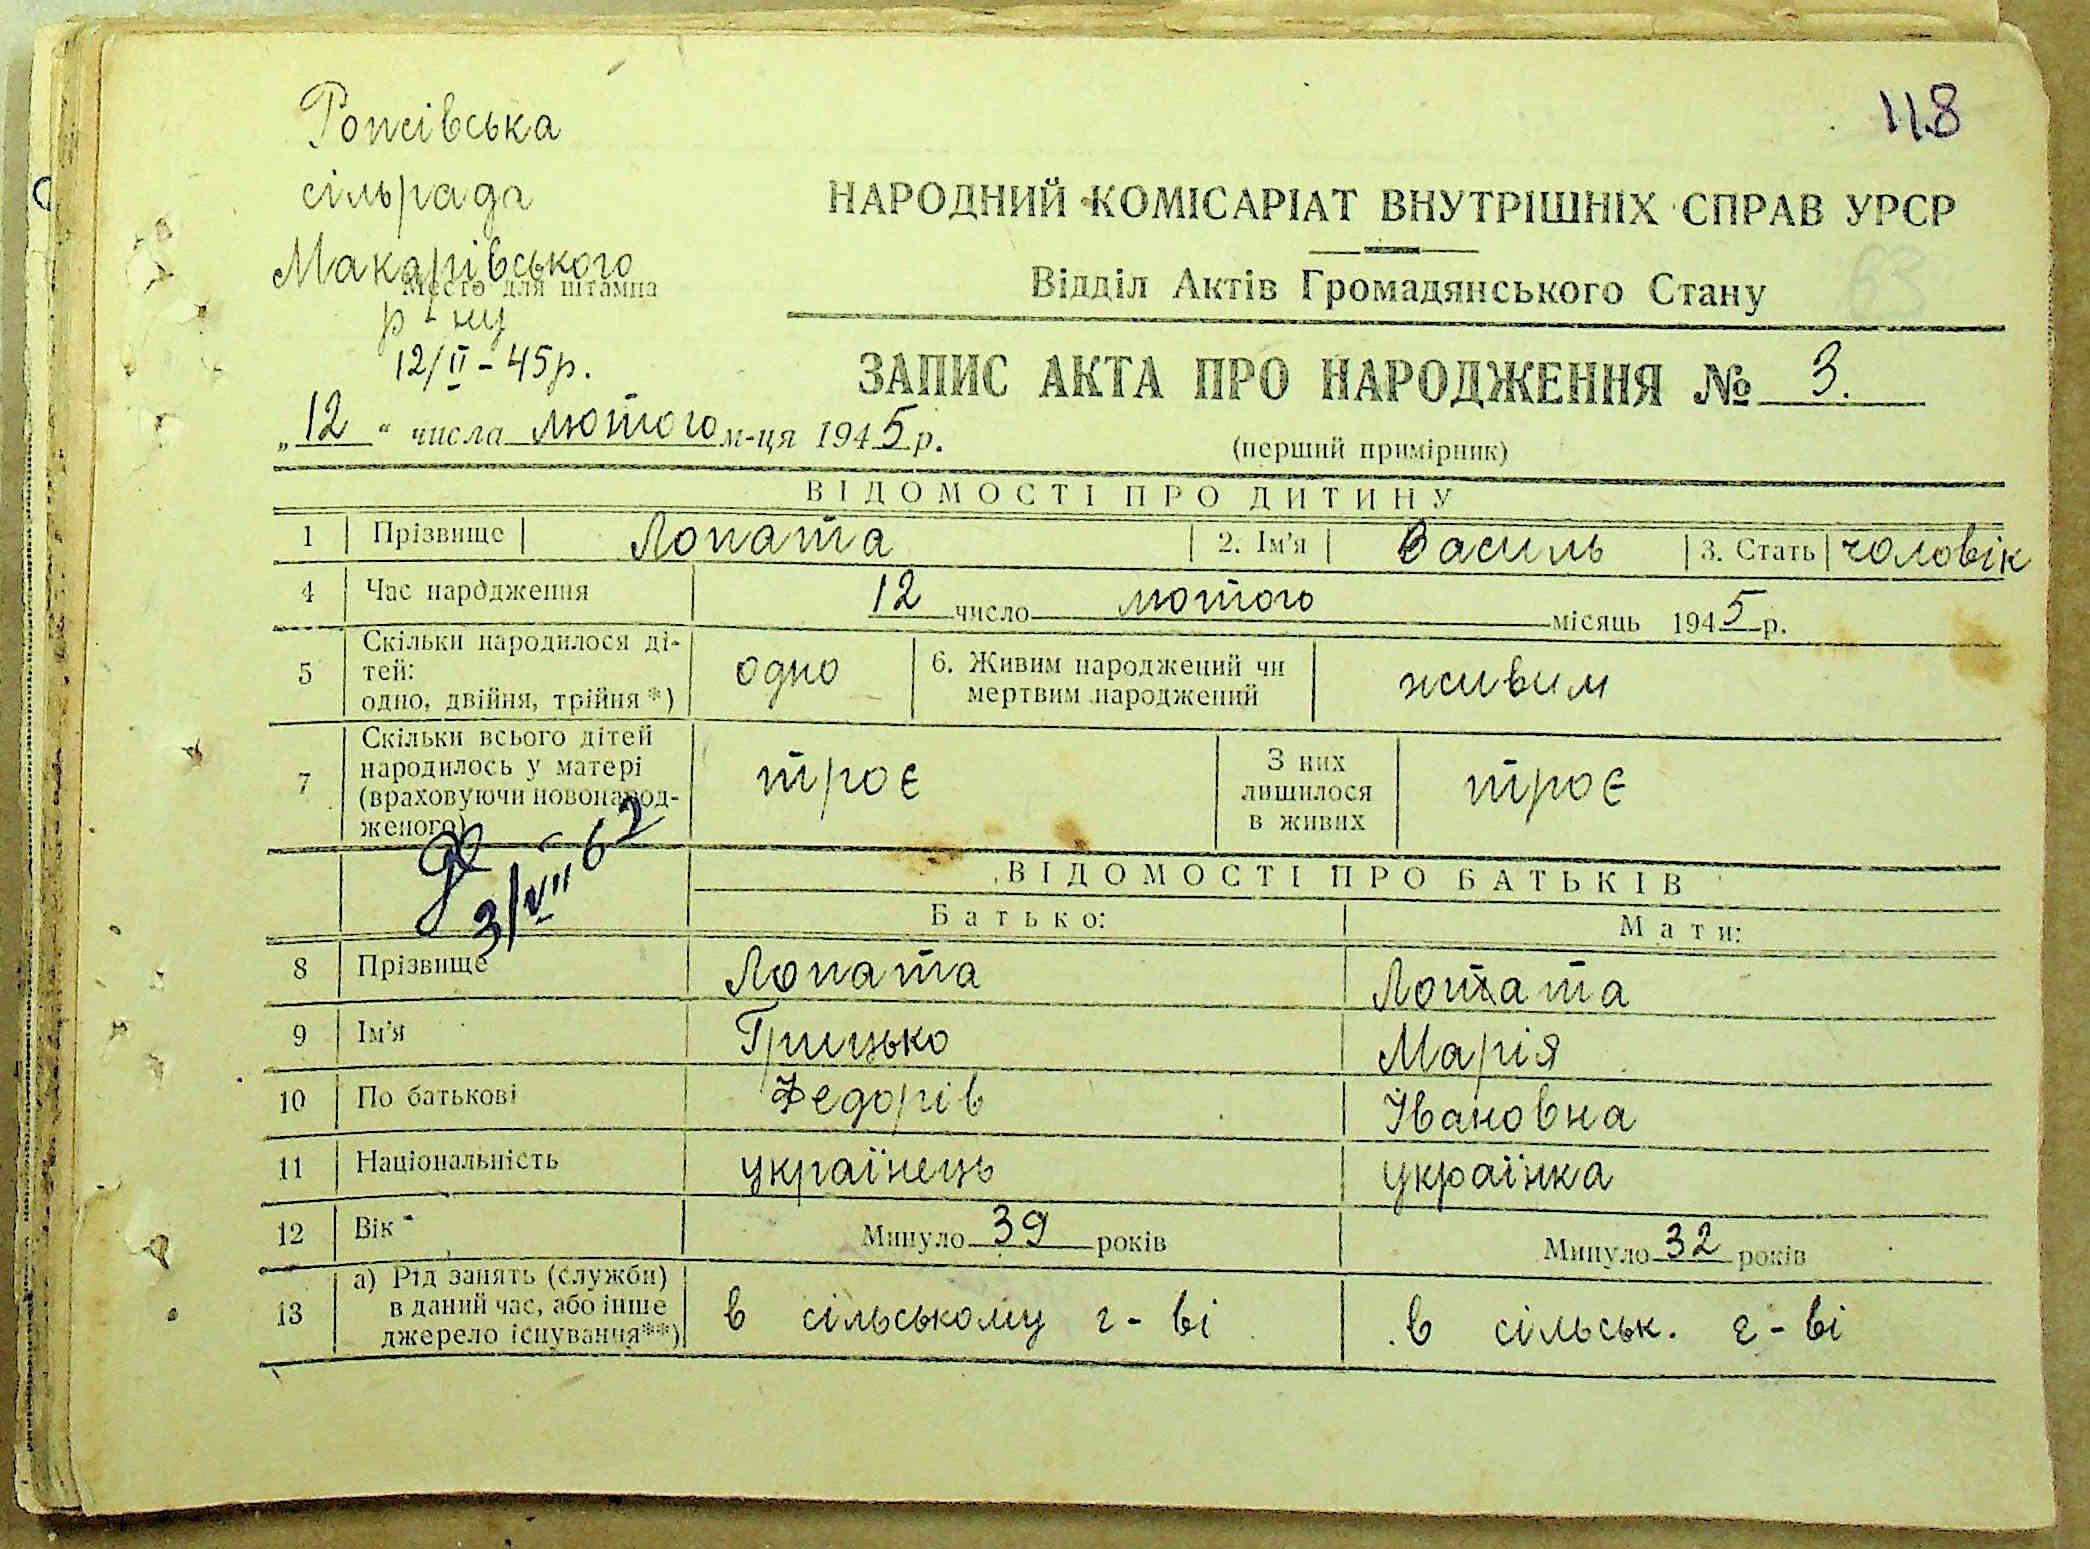 118
Рожівська
сільрада
Макарівського
Место для штампа
р-ну
12/II-45р.
НАРОДНИЙ КОМІСАРІАТ ВНУТРІШНІХ СПРАВ УРСР
63
Відділ Актів Громадянського Стану
ЗАПИС АКТА ПРО НАРОДЖЕННЯ № 3.
„12“ числа лютого м-ця 1945 р.
(перший примірник)
ВІДОМОСТІ ПРО ДИТИНУ
1 Прізвище Лопата 2. Ім'я Василь 3. Стать чоловік
4 Час народження 12 число лютого місяць 1945 р.
5 Скільки народилося ді-
тей:
одно, двійня, трійня *) одно 6. Живим народжений чи
мертвим народжений живим
7 Скільки всього дітей
народилось у матері
(враховуючи новонарод-
женого) троє З них
лишилося
в живих троє
3/VII 62
ВІДОМОСТІ ПРО БАТЬКІВ
Батько: Мати:
8 Прізвище Лопата Лопата
9 Ім'я Грицько Марія
10 По батькові Федорів Івановна
11 Національність українець українка
12 Вік Минуло 39 років Минуло 32 років
13 а) Рід занять (служби)
в даний час, або інше
джерело існування**) в сільському г-ві в сільськ. г-ві